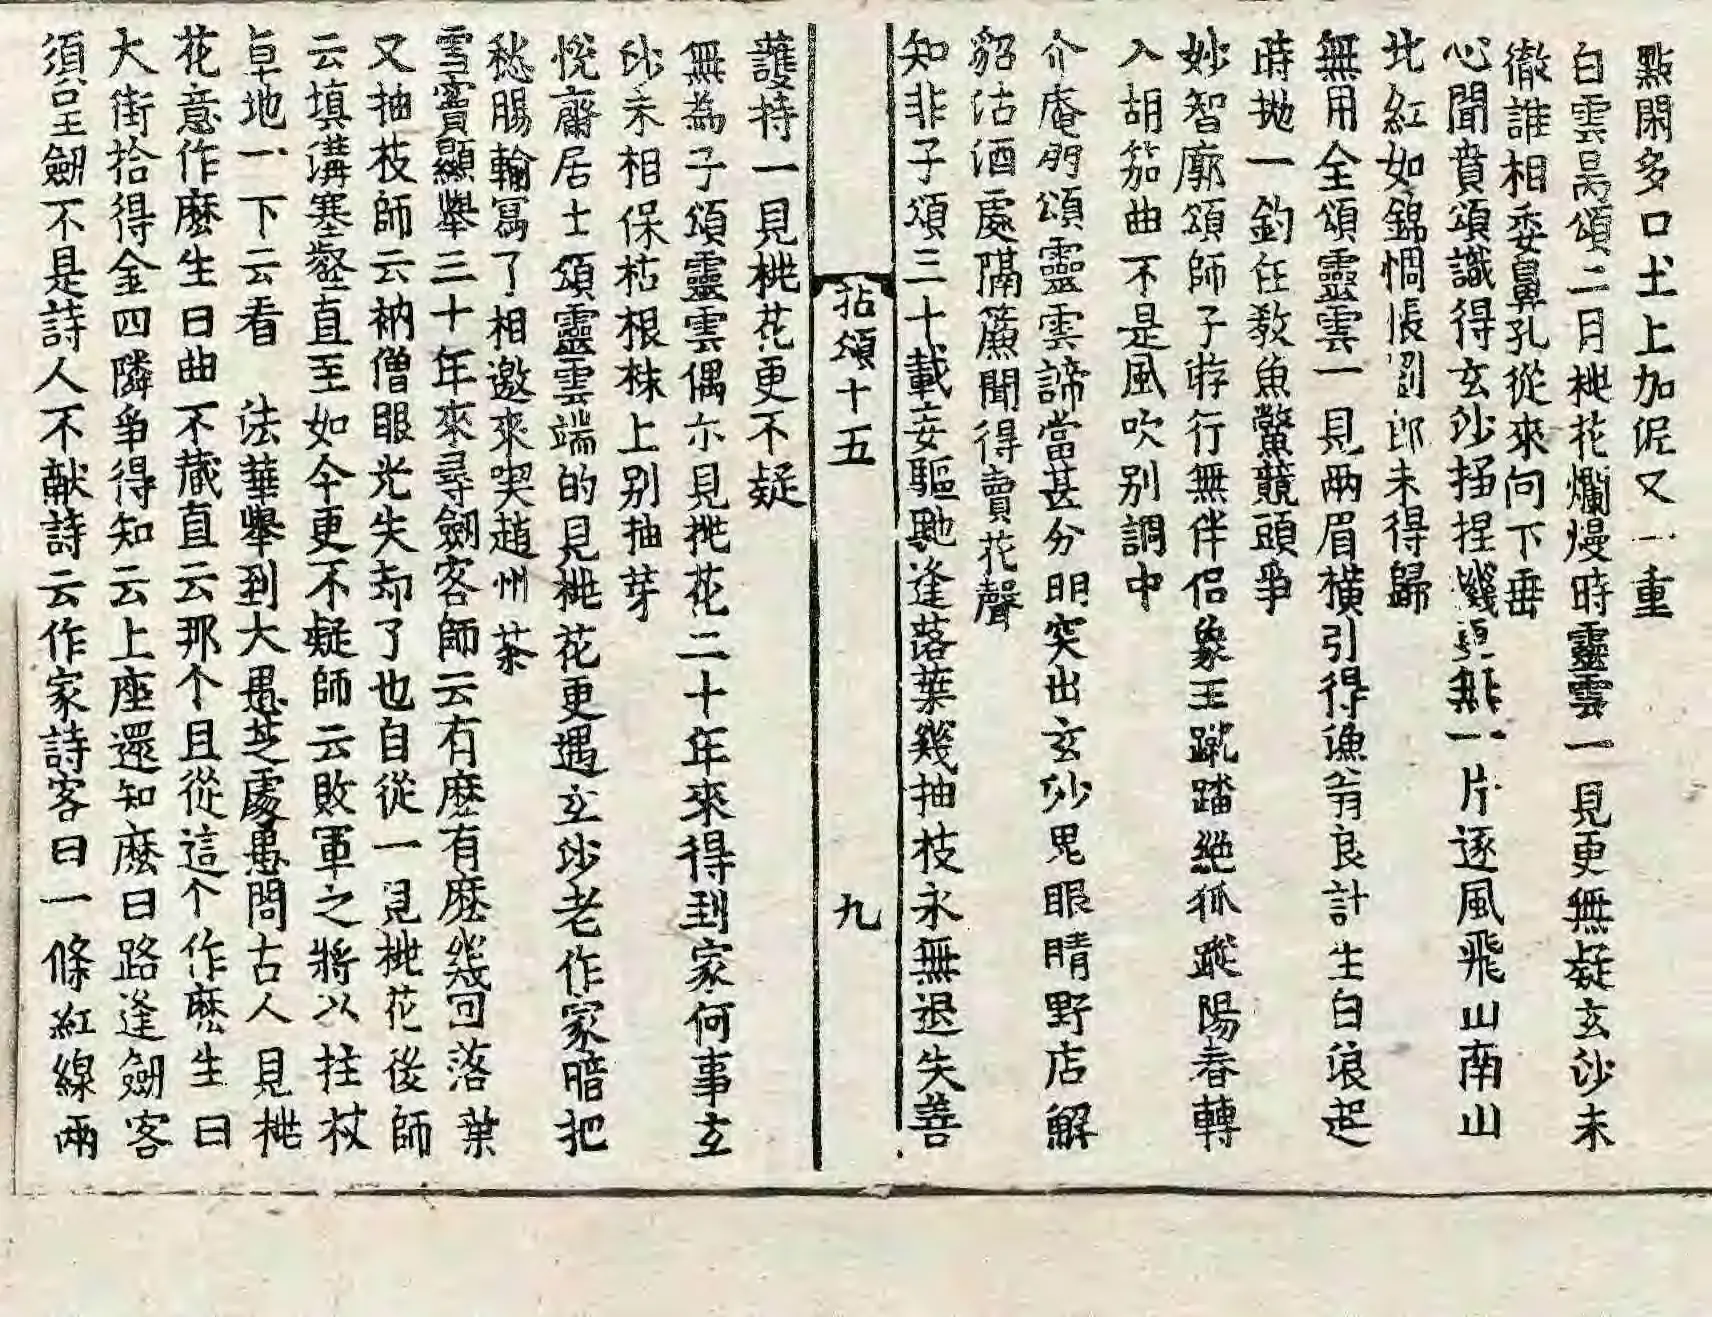 點閑多口土上加泥又一重
白雲昺頌二月桃花爛熳時靈雲一見更無疑玄沙未
徹誰相委鼻孔從來向下垂
心聞賁頌識得玄沙揑捏機更無一片逐風飛山南山
北紅如錦惆悵劉郎未得歸
無用全頌靈雲一見兩眉橫引得漁翁良計生白浪起
時拋一釣任教魚鱉競頭爭
妙智廓頌師子遊行無伴侶象王蹴踏絕狐蹤陽春轉
入胡笳曲不是風吹別調中
介庵朋頌靈雲諦當甚分明突出玄沙鬼眼睛野店解
貂沽酒處隔簾聞得賣花聲
知非子頌三十載妄驅馳逢落葉幾抽枝永無退失善
拈頌十五 九
護持一見桃花更不疑
無為子頌靈雲偶尒見桃花二十年來得到家何事玄
沙未相保枯根株上別抽芽
悅齋居士頌靈雲端的見桃花更遇玄沙老作家暗把
愁腸輸寫了相邀來喫趙州茶
雪竇顯舉三十年來尋劒客師云有麽有麽幾回落葉
又抽枝師云衲僧眼光失却了也自從一見桃花後師
云填溝塞壑直至如今更不疑師云敗軍之將以拄杖
卓地一下云看 法華舉到大愚芝處愚問古人見桃
花意作麽生曰曲不藏直云那个且從這个作麽生曰
大街拾得金四隣爭得知云上座還知麽曰路逢劒客
須呈劒不是詩人不献詩云作家詩客曰一條紅線兩